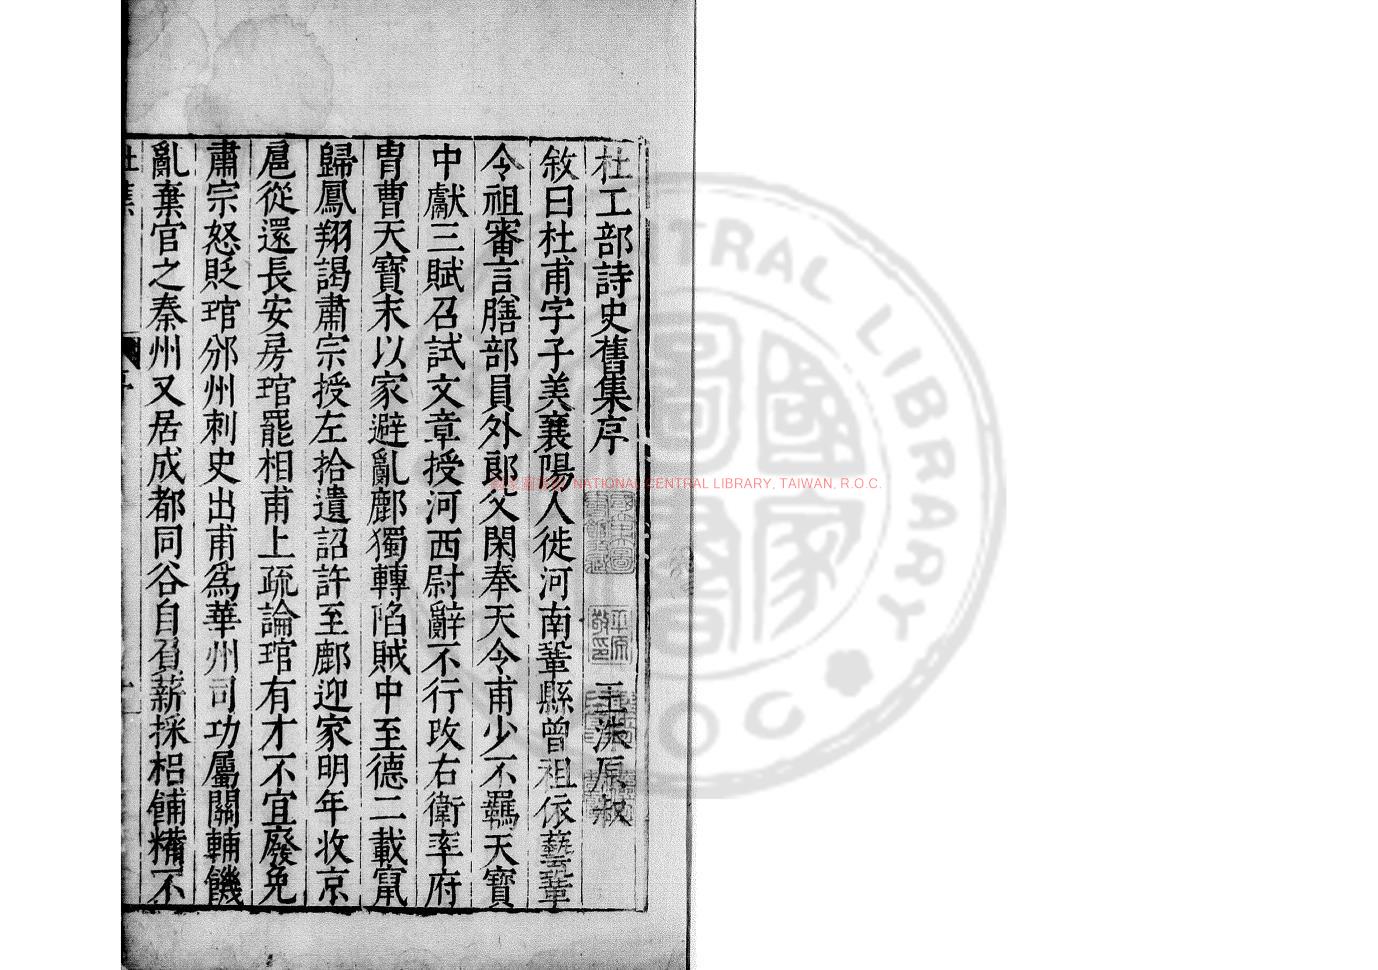 杜工部詩史舊集序
王洙原叔
敘曰杜甫字子美襄陽人徙河南鞏縣曾祖依藝鞏
令祖審言膳部員外郎父閑奉天令甫少不羈天寶
中獻三賦召試文章授河西尉辭不行改右衛率府
胄曹天寶末以家避亂鄜獨轉陷賊中至德二載竄
歸鳳翔謁肅宗授左拾遺詔許至鄜迎家明年收京
扈從還長安房琯罷相甫上疏論琯有才不宜廢免
肅宗怒貶琯邠州刺史出甫為華州司功屬關輔饑
亂棄官之秦州又居成都同谷自負薪採梠餔糒不
NATIONAL CENTRAL LIBRARY, TAIWAN, R.O.C.
CENTRAL LIBRARY
R.O.C.
國家圖書館